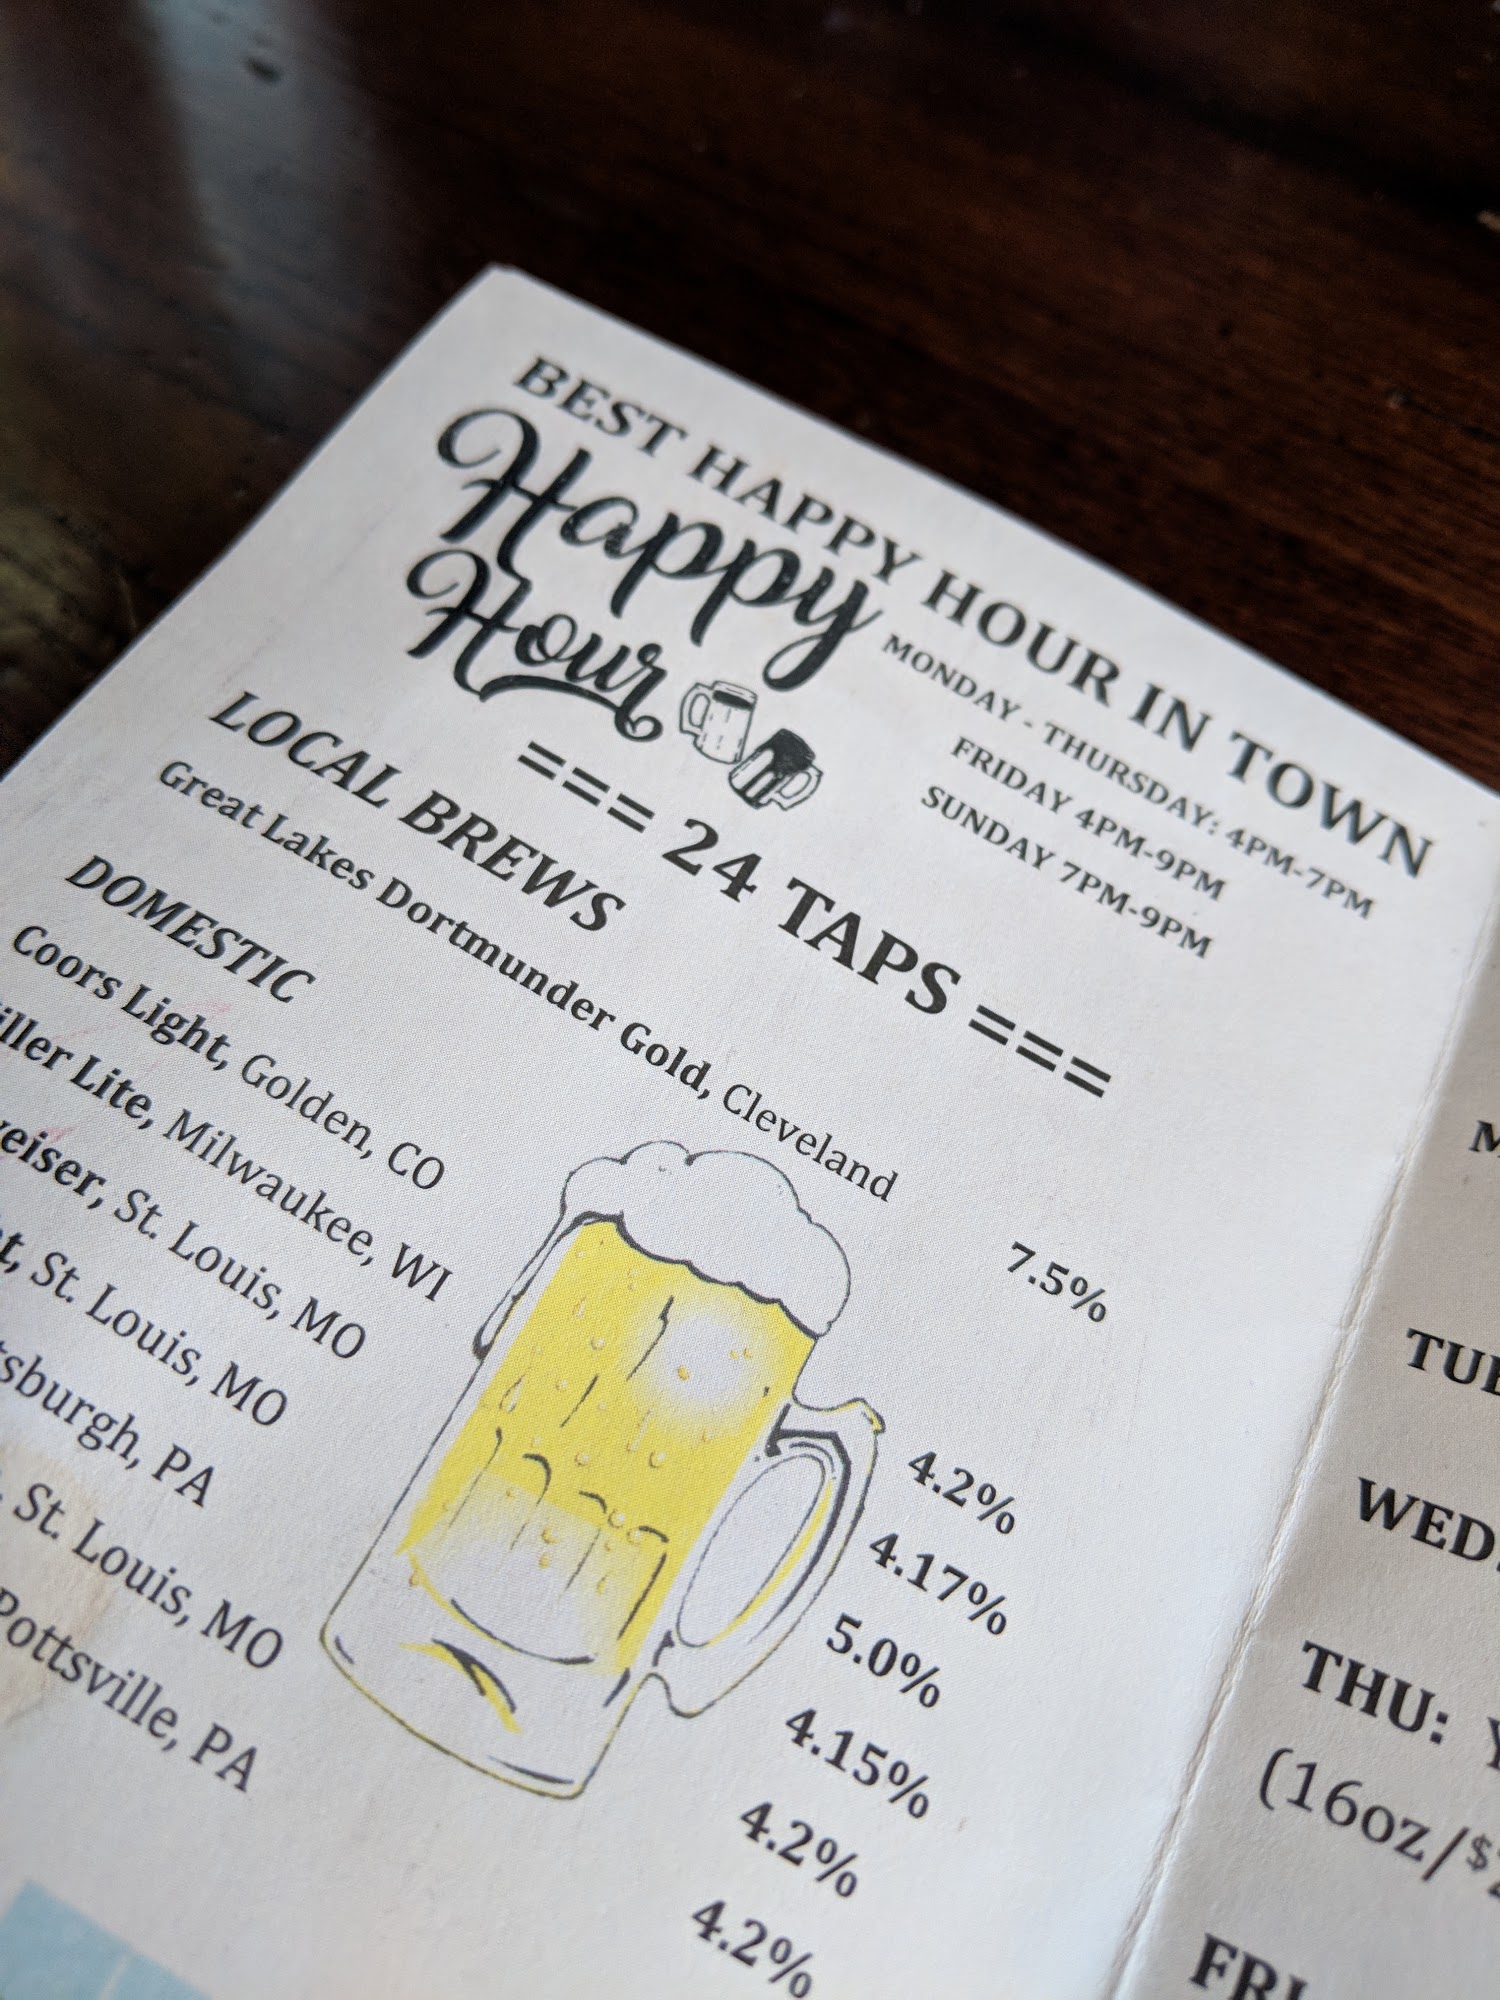 BEST HAPPY HOUR IN TOWN
Happy
Hour
MONDAY - THURSDAY: 4PM-7PM
FRIDAY 4PM-9PM
SUNDAY 7PM-9PM
=== 24 TAPS ===
LOCAL BREWS
Great Lakes Dortmunder Gold, Cleveland 7.5%
DOMESTIC
Coors Light, Golden, CO 4.2%
iller Lite, Milwaukee, WI 4.17%
eiser, St. Louis, MO 5.0%
t, St. Louis, MO 4.15%
sburgh, PA 4.2%
St. Louis, MO 4.2%
Pottsville, PA
M
TUE
WED
THU: Y
(16oz/$2
FRI